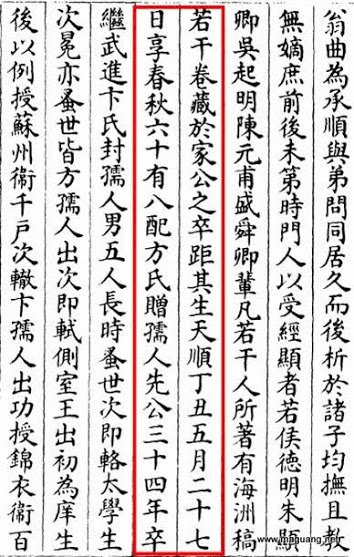 翁曲為承順與弟問同居久而後析於諸子均撫且教
無嫡庶前後未第時門人以受經顯者若侯德明朱顯
卿吳起明陳元甫盛舜卿輩凡若干人所著有海洲稿
若干卷藏於家公之卒距其生天順丁丑五月二十七
日享春秋六十有八配方氏贈孺人先公三十四年卒
繼武進卞氏封孺人男五人長時蚤世次即輅太學生
次冕亦蚤世皆方孺人出次即軾側室王出初為庠生
後以例授蘇州衞千戶次轍卞孺人出功授錦衣衞百
www.maguang.net